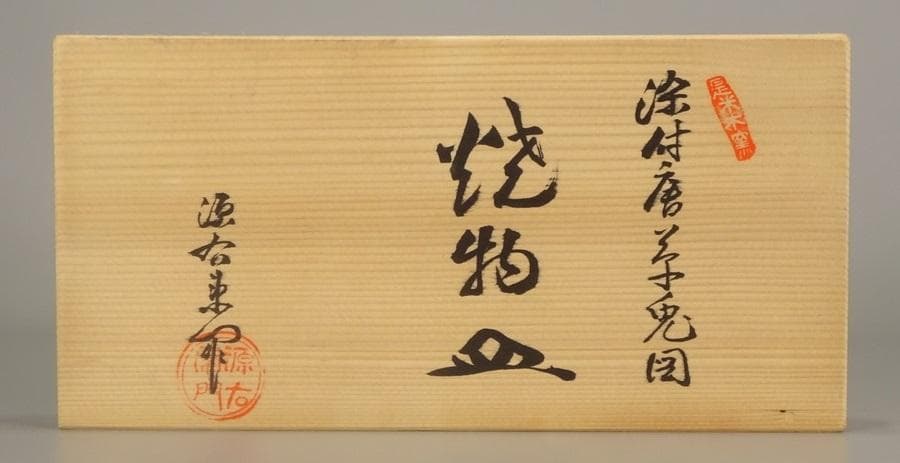 染付唐草兎図
焼物皿
源右衛門
源右衛門